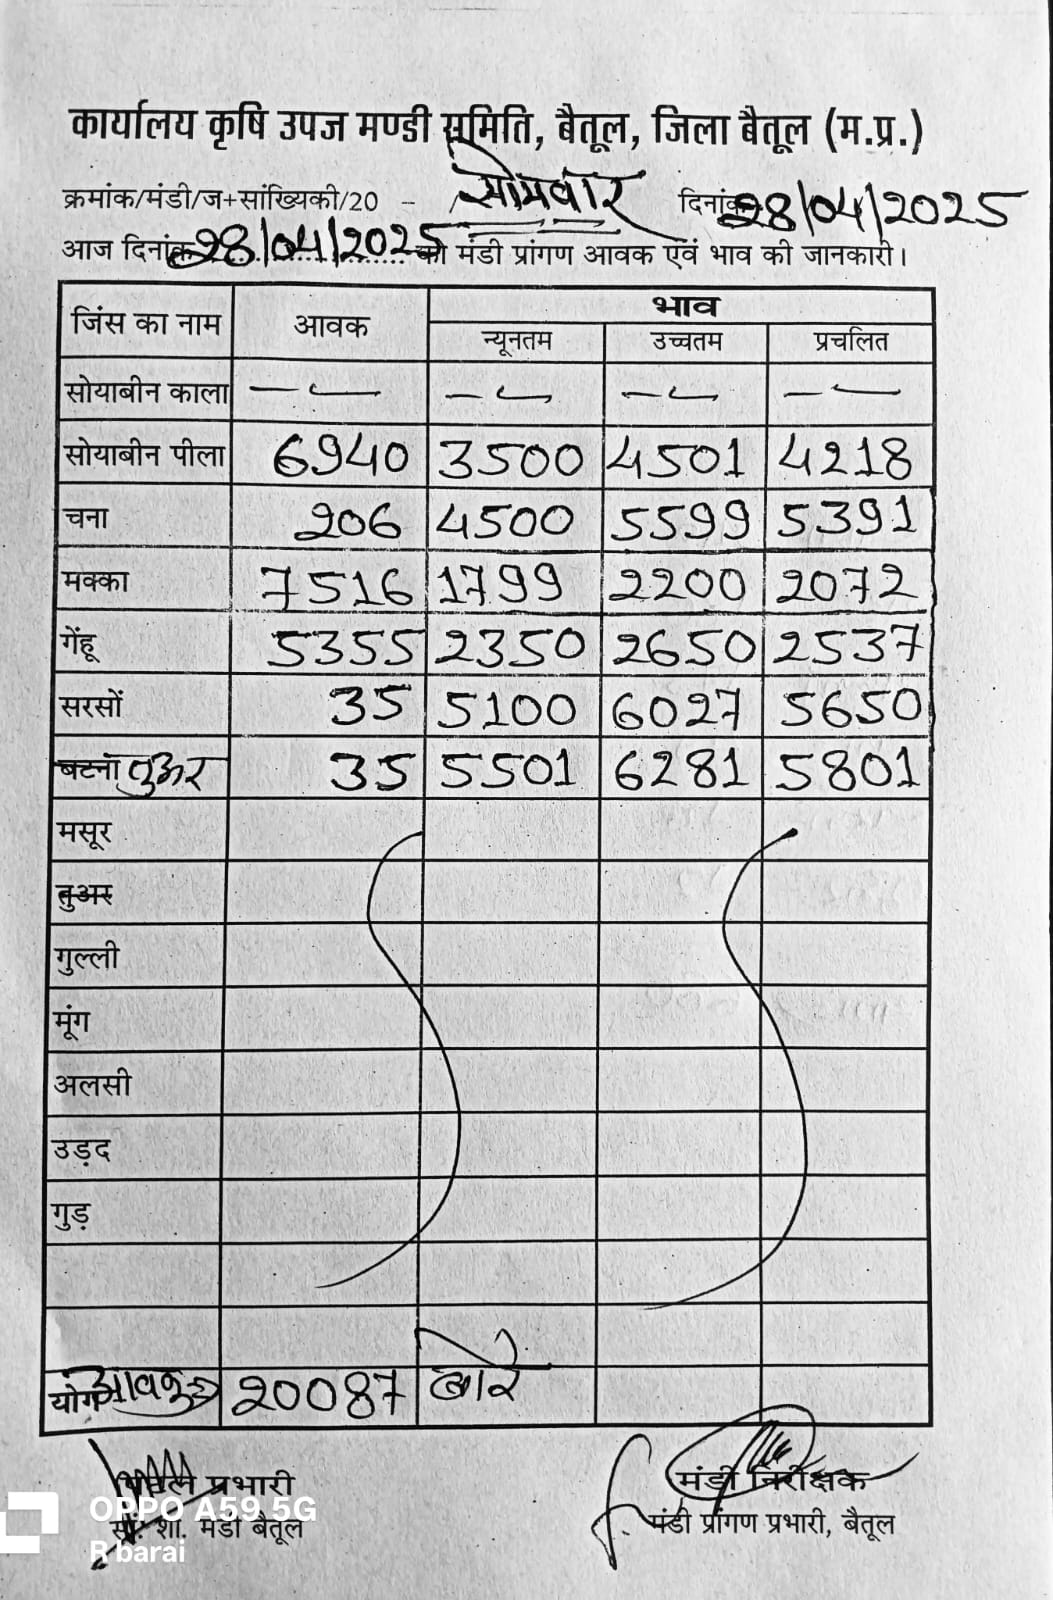 कार्यालय कृषि उपज मण्डी समिति, बैतूल, जिला बैतूल (म.प्र.)
क्रमांक/मंडी/ज+सांख्यिकी/20 - सोमवार दिनांक 28/04/2025
आज दिनांक 28/04/2025 को मंडी प्रांगण आवक एवं भाव की जानकारी।
जिंस का नाम आवक भाव
न्यूनतम उच्चतम प्रचलित
सोयाबीन काला — — — —
सोयाबीन पीला 6940 3500 4501 4218
चना 206 4500 5599 5391
मक्का 7516 1799 2200 2072
गेंहू 5355 2350 2650 2537
सरसों 35 5100 6027 5650
बटना तुअर 35 5501 6281 5801
मसूर
तुअर
गुल्ली
मूंग
अलसी
उड़द
गुड़
योग आवक 20087 बोरे
प्रभारी मंडी निरीक्षक
शा. मंडी बैतूल मंडी प्रांगण प्रभारी, बैतूल
OPPO A59 5G
R barai